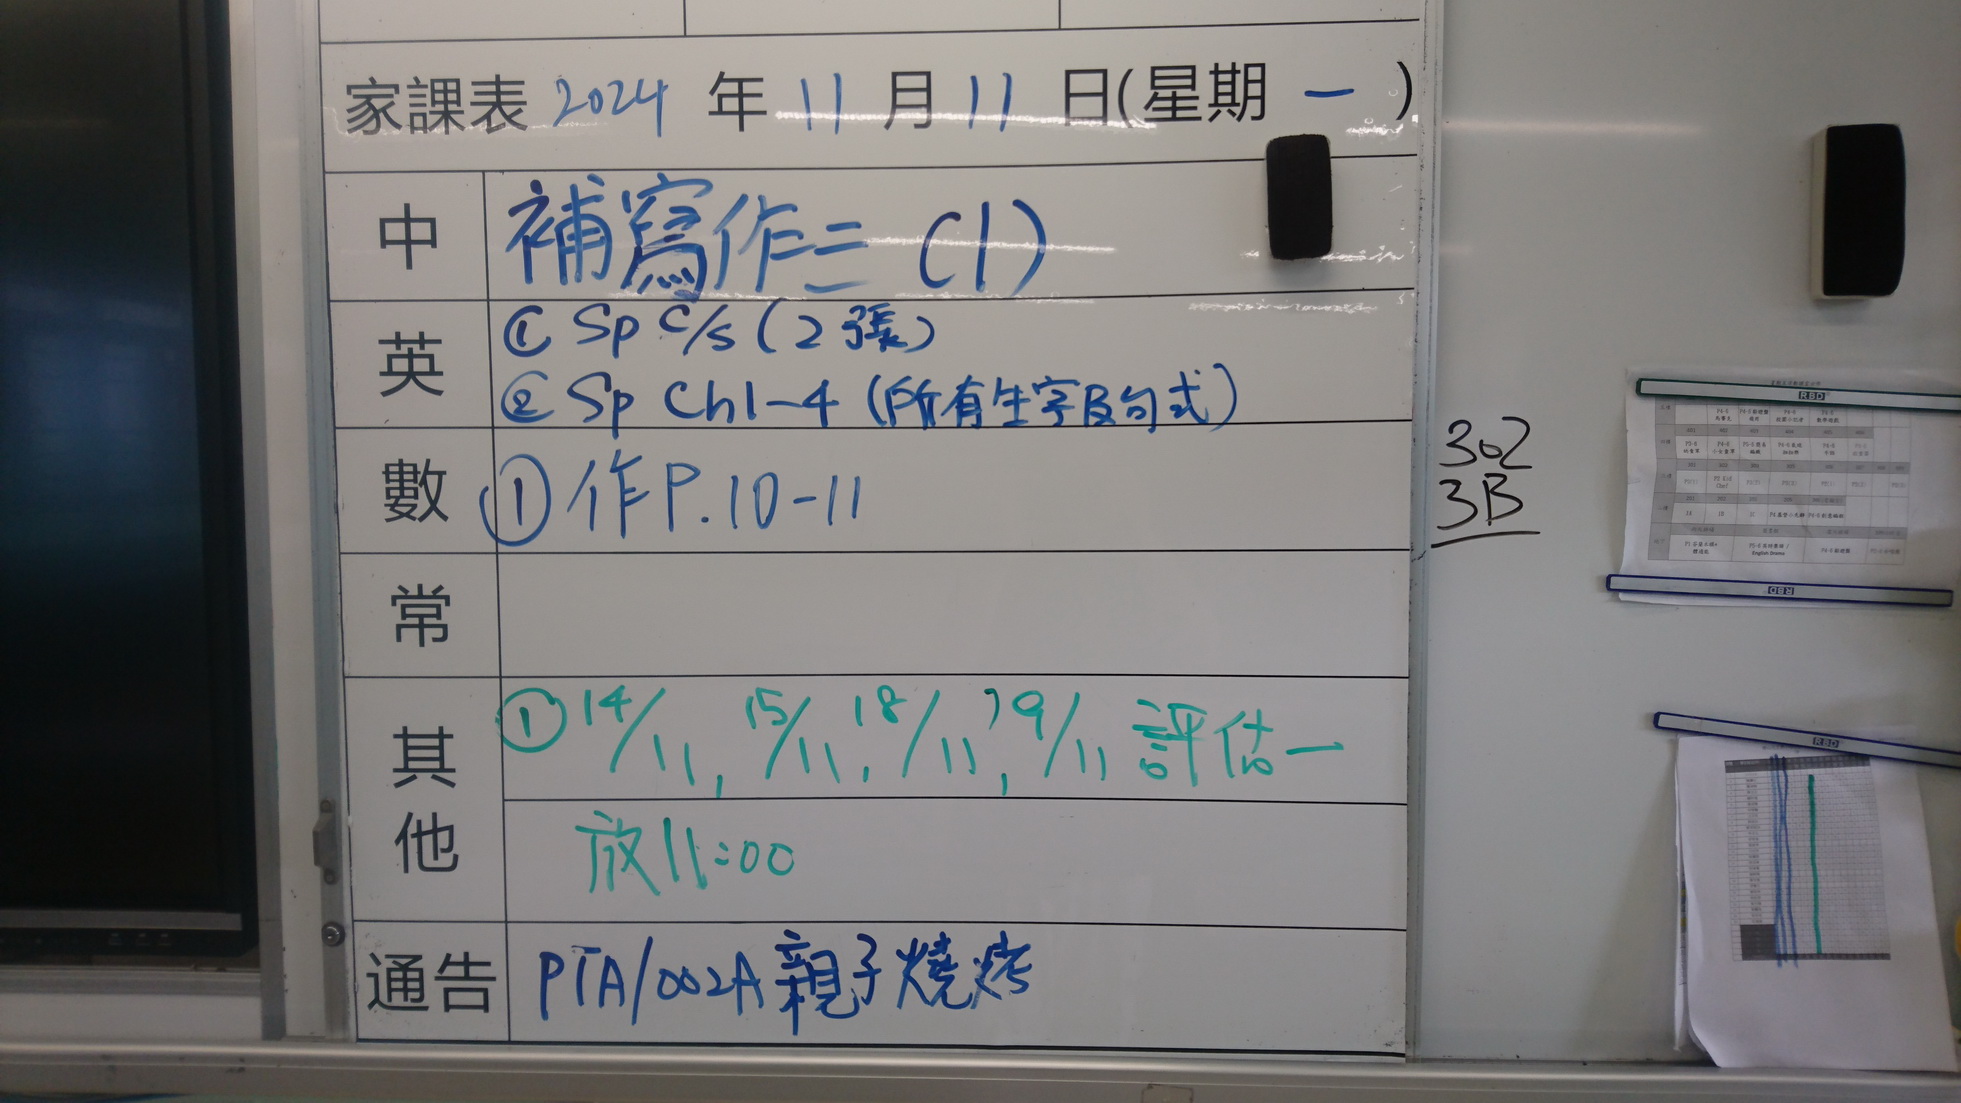 家課表 2024 年 11 月 11 日(星期 一 )
中 補寫作三 (1)
英 ① Sp c/s (2張)
② Sp Ch1-4 (所有生字及句式)
數 ① 作 P.10-11
常
其他 ① 14/11, 15/11, 18/11, 19/11 評估一
放 11:00
通告 PTA/002A 親子燒烤
302
3B
RBD
RBD
RBD